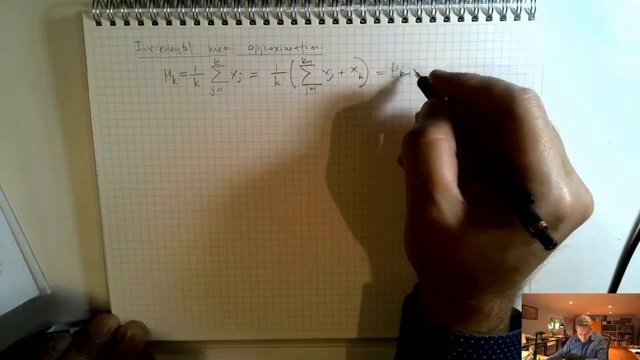 Incremental mean approximation:
μ_k = 1/k ∑_{j=1}^{k} x_j = 1/k ( ∑_{j=1}^{k-1} x_j + x_k ) = μ_{k-1}